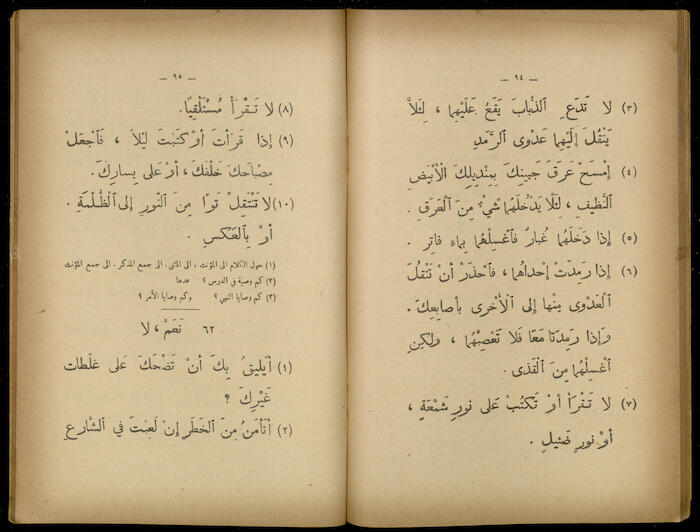 — ٩٤ —
(٣) لا تَدَعِ الذُّبابَ يَقَعُ عَلَيْهِما ، لِئَلاَّ
يَنْقُلَ إِلَيْهِما عَدْوى الرَّمَدِ
(٤) إِمْسَحْ عَرَقَ جَبينِكَ بِمِنْديلِكَ الأَبْيَضِ
النَّظيفِ ، لِئَلَّا يَدْخُلَهُما شَيْءٌ مِنَ الْعَرَقِ .
(٥) إِذا دَخَلَهُما غُبارٌ فَاغْسِلْهُما بِماءٍ فاتِرٍ .
(٦) إِذا رَمِدَتْ إِحْداهُما ، فَاحْذَرْ أَنْ تَنْقُلَ
الْعَدْوى مِنْها إِلى الأُخْرى بِأَصابِعِكَ .
وَإِذا رَمِدَتا مَعًا فَلا تَعْصِبْهُما ، وَلكِنِ
اغْسِلْهُما مِنَ الْقَذى .
(٧) لا تَقْرَأْ أَوْ تَكْتُبْ عَلى نورِ شَمْعَةٍ ،
أَوْ نورٍ ضَئيلٍ .
— ٩٥ —
(٨) لا تَقْرَأْ مُسْتَلْقِيًا .
(٩) إِذا قَرَأْتَ أَوْ كَتَبْتَ لَيْلاً ، فَاجْعَلْ
مِصْباحَكَ خَلْفَكَ ، أَوْ عَلى يَسارِكَ .
(١٠) لا تَنْتَقِلْ تَوًّا مِنَ النّورِ إِلى الظُّلْمَةِ .
أَوْ بِالْعَكْسِ .
(١) حول الكلام الى المؤنث ، الى المثنى ، الى جمع المذكر ، الى جمع المؤنث
(٢) كم وصية في الدرس ؟ عدها
(٣) كم وصايا النهي ؟ وكم وصايا الأمر ؟
٦٢ نَعَمْ ، لا
(١) أَيَليقُ بِكَ أَنْ تَضْحَكَ عَلى غَلَطات
غَيْرِكَ ؟
(٢) أَتَأْمَنُ مِنَ الْخَطَرِ إِنْ لَعِبْتَ في الشّارِعِ